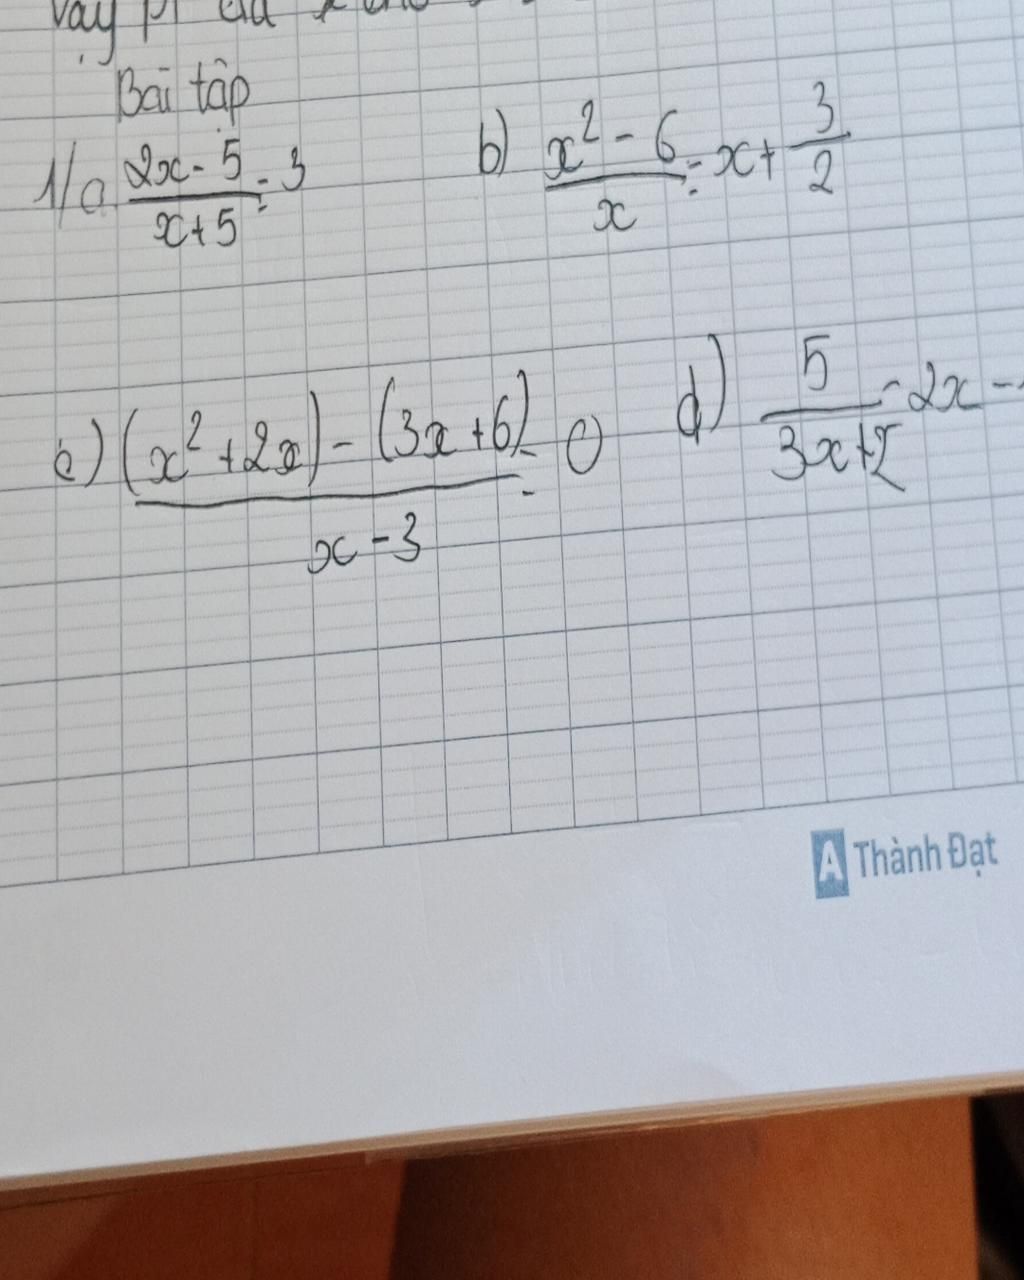 Bài tập
1/a. \frac{2x - 5}{x + 5} = 3 b) \frac{x^2 - 6}{x} = x + \frac{3}{2}
c) \frac{(x^2 + 2x) - (3x + 6)}{x - 3} = 0 d) \frac{5}{3x + 2} = 2x -
A Thành Đạt